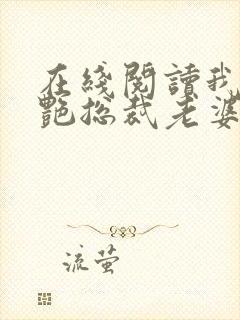 在綫閱讀我
艷總裁老婆
流螢